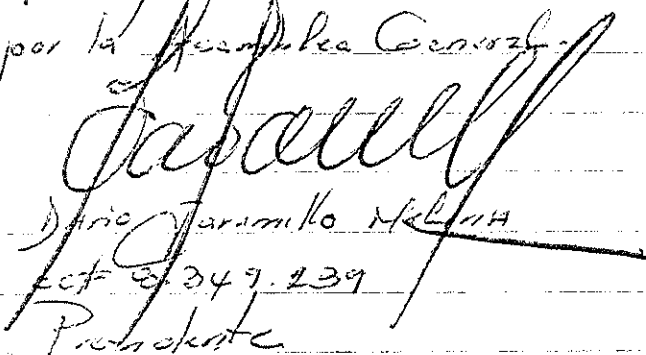 por la Asamblea General.
Dario Jaramillo Molina
cc# 8.349.239
Presidente